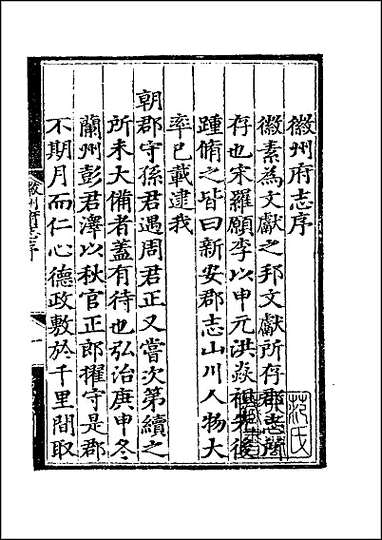 徽州府志序
徽素為文獻之邦文獻所存郡志所
存也宋羅願李以申元洪焱祖先後
踵脩之皆曰新安郡志山川人物大
率已載逮我
朝郡守孫君遇周君正又嘗次第續之
所未大備者蓋有待也弘治庚申冬
蘭州彭君澤以秋官正郎擢守是郡
不期月而仁心德政敷於千里間取
徽州府志序
范氏